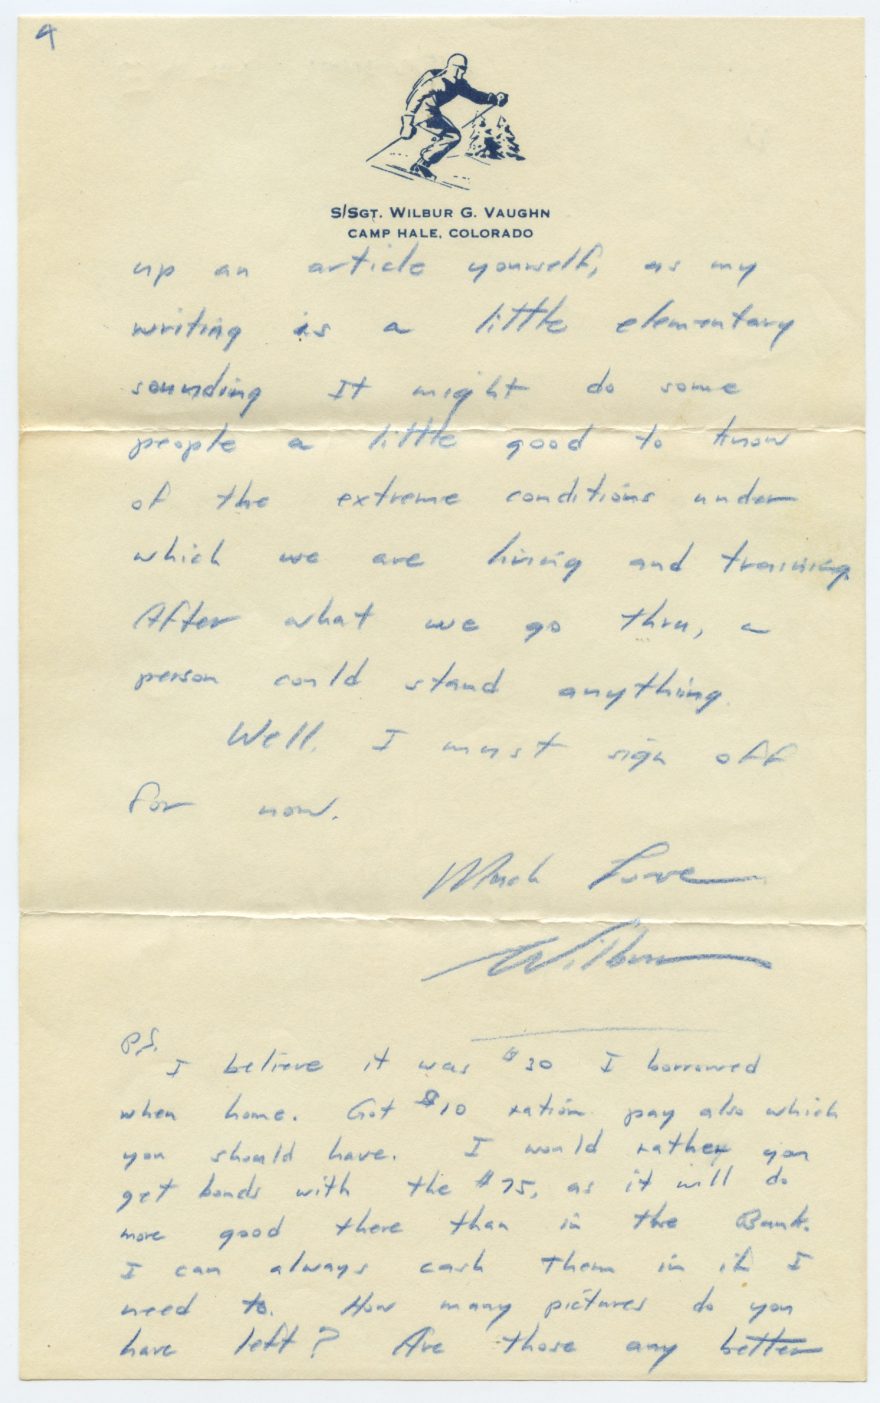 4
S/SGT. WILBUR G. VAUGHN
CAMP HALE, COLORADO
up an article yourself, as my
writing is a little elementary
sounding It might do some
people a little good to know
of the extreme conditions under
which we are living and training
After what we go thru, a
person could stand anything.
Well, I must sign off
for now.
Much Love
Wilbur
P.S.
I believe it was $30 I borrowed
when home. Got $10 ration pay also which
you should have. I would rather you
get bonds with the $75, as it will do
more good there than in the Bank.
I can always cash them in if I
need to. How many pictures do you
have left? Are those any better